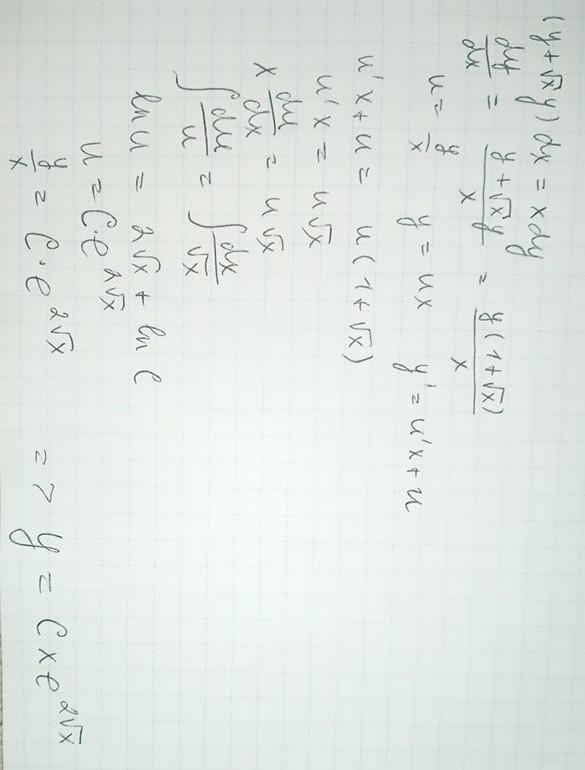 (y+√x y) dx = x dy
dy/dx = (y+√x y)/x = y(1+√x)/x
u = y/x y = ux y' = u'x + u
u'x + u = u(1+√x)
u'x = u√x
x du/dx = u√x
∫ du/u = ∫ dx/√x
ln u = 2√x + ln C
u = C·e^2√x
y/x = C·e^2√x => y = C x e^2√x